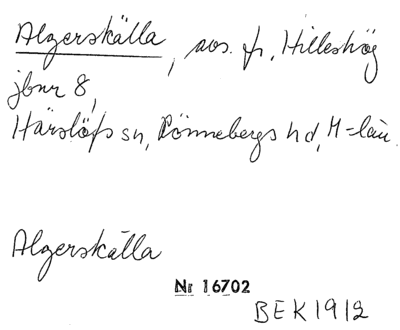 Algerskälla, avs. fr. Hilleshög
jbnr 8,
Härslöfs sn, Rönnebergs hd, M-län.
Algerskälla
Nr 16702
BEK 1912